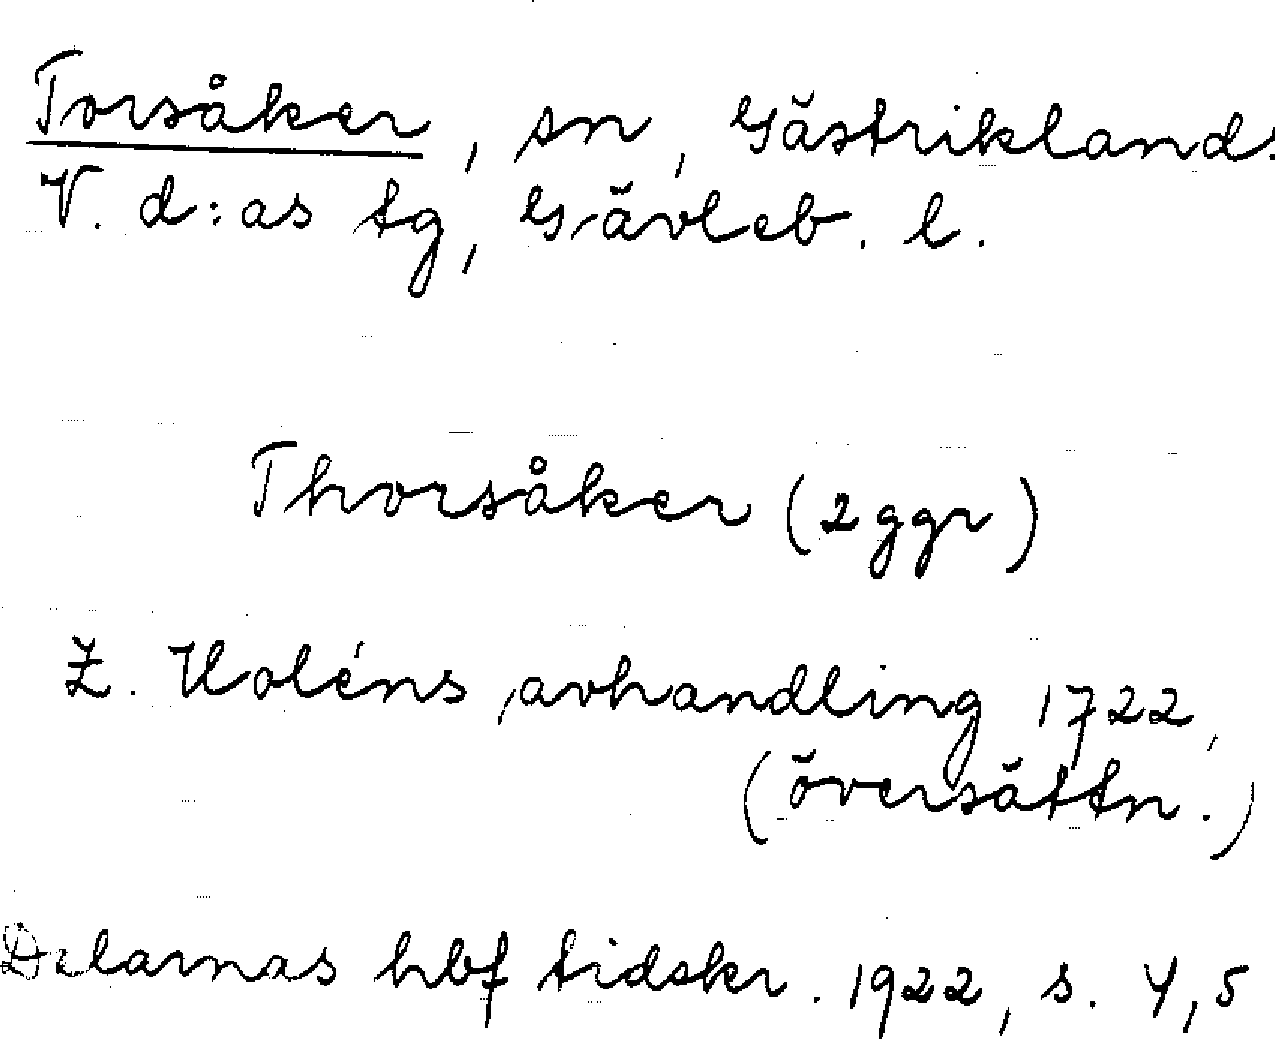 Torsåker, sn, Gästrikland.
V. d:as tg, Gävleb. l.
Thorsåker (2 ggr)
Z. Holéns avhandling 1722,
(översättn.)
Dalarnas hbf tidskr. 1922, s. 4,5